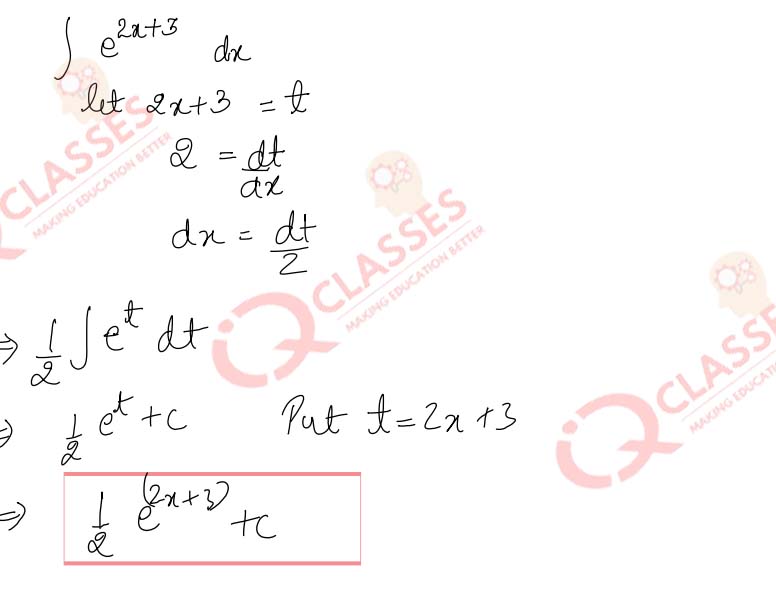 ∫ e^{2x+3} dx
let 2x+3 = t
2 = dt/dx
dx = dt/2
⇒ 1/2 ∫ e^t dt
⇒ 1/2 e^t + c Put t = 2x+3
⇒ 1/2 e^{(2x+3)} + c
CLASSES
MAKING EDUCATION BETTER
iQ CLASSES
MAKING EDUCATION BETTER
iQ CLASSES
MAKING EDUCATION